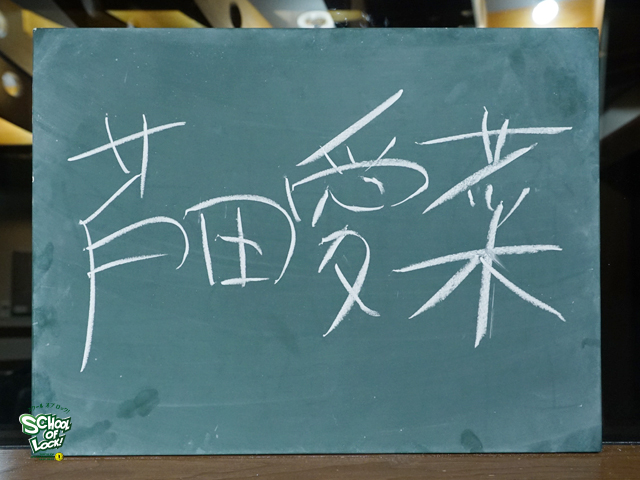 芦田愛菜
SCHOOL
OF
LOCK!